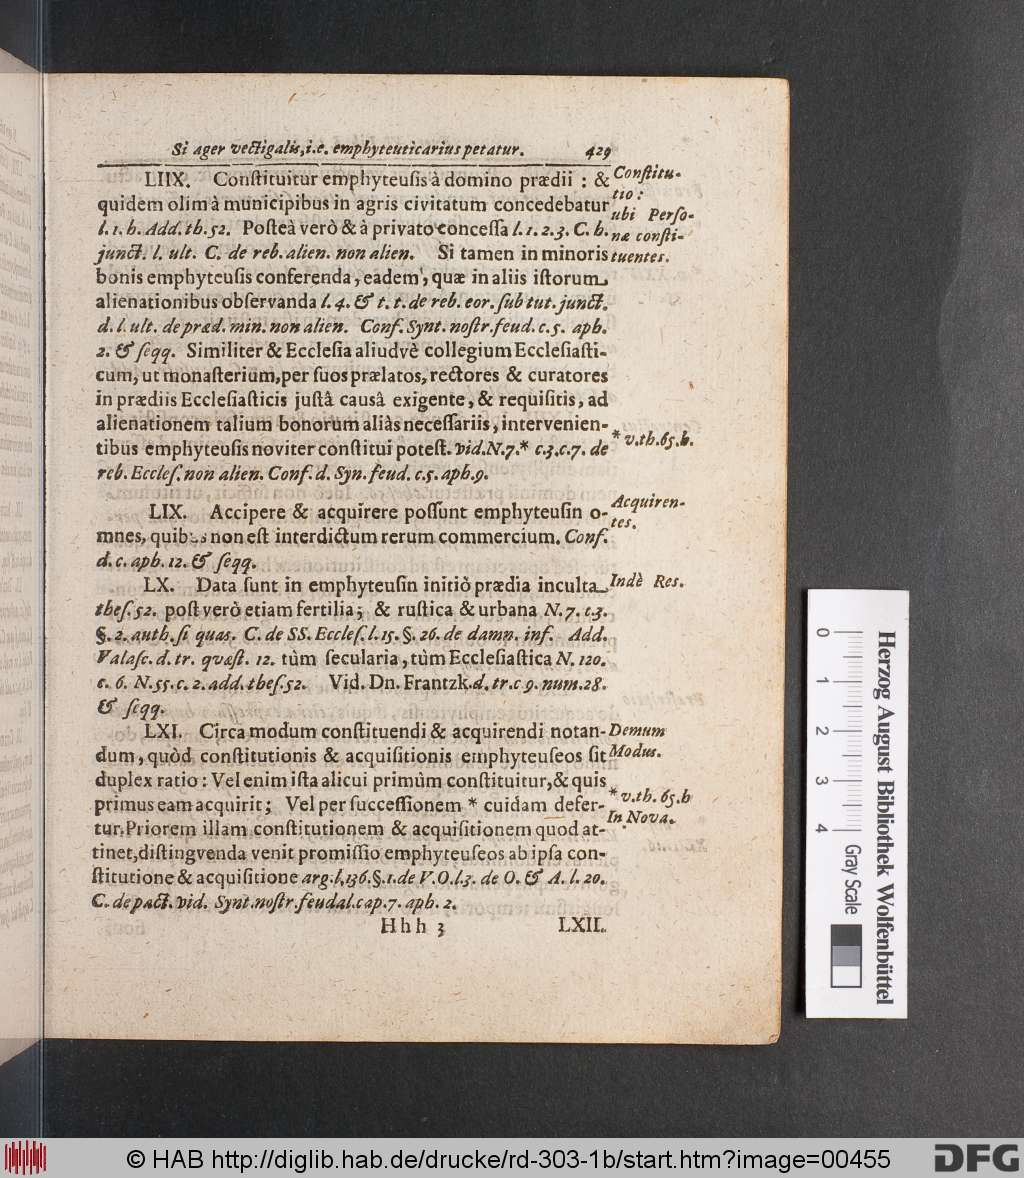 Si ager vectigalis, i.e. emphyteuticarius petatur. 429
LIIX. Constituitur emphyteusis à domino prædii : &
quidem olim à municipibus in agris civitatum concedebatur
l. 1. h. Add. th. 52. Posteà verò & à privato concessa l. 1. 2. 3. C. h.
junct. l. ult. C. de reb. alien. non alien. Si tamen in minoris
bonis emphyteusis conferenda, eadem, quæ in aliis istorum
alienationibus observanda l. 4. & t. t. de reb. eor. sub tut. junct.
d. l. ult. de præd. min. non alien. Conf. Synt. nostr. feud. c. 5. aph.
2. & seqq. Similiter & Ecclesia aliudvè collegium Ecclesiasti-
cum, ut monasterium, per suos prælatos, rectores & curatores
in prædiis Ecclesiasticis justâ causâ exigente, & requisitis, ad
alienationem talium bonorum aliàs necessariis, intervenien-
tibus emphyteusis noviter constitui potest. vid. N. 7. * c. 3. c. 7. de
reb. Eccles. non alien. Conf. d. Syn. feud. c. 5. aph. 9.
LIX. Accipere & acquirere possunt emphyteusin o-
mnes, quibus non est interdictum rerum commercium. Conf.
d. c. aph. 12. & seqq.
LX. Data sunt in emphyteusin initiò prædia inculta
thes. 52. post verò etiam fertilia; & rustica & urbana N. 7. c. 3.
§. 2. auth. si quas. C. de SS. Eccles. l. 15. §. 26. de damn. inf. Add.
Valasc. d. tr. quæst. 12. tùm secularia, tùm Ecclesiastica N. 120.
c. 6. N. 55. c. 2. add. thes. 52. Vid. Dn. Frantzk. d. tr. c 9. num. 28.
& seqq.
LXI. Circa modum constituendi & acquirendi notan-
dum, quòd constitutionis & acquisitionis emphyteuseos sit
duplex ratio: Vel enim ista alicui primùm constituitur, & quis
primus eam acquirit; Vel per successionem * cuidam defer-
tur. Priorem illam constitutionem & acquisitionem quod at-
tinet, distingvenda venit promissio emphyteuseos ab ipsa con-
stitutione & acquisitione arg. l. 136. §. 1. de V. O. l. 3. de O. & A. l. 20.
C. de pact. vid. Synt. nostr. feudal. cap. 7. aph. 2.
Hhh 3 LXII.
Constitu-
tio:
ubi Perso-
næ consti-
tuentes.
* v. th. 65. h.
Acquiren-
tes.
Indè Res.
Demum
Modus.
* v. th. 65. h
In Nova.
0 1 2 3 4
Gray Scale
Herzog August Bibliothek Wolfenbüttel
© HAB http://diglib.hab.de/drucke/rd-303-1b/start.htm?image=00455
DFG